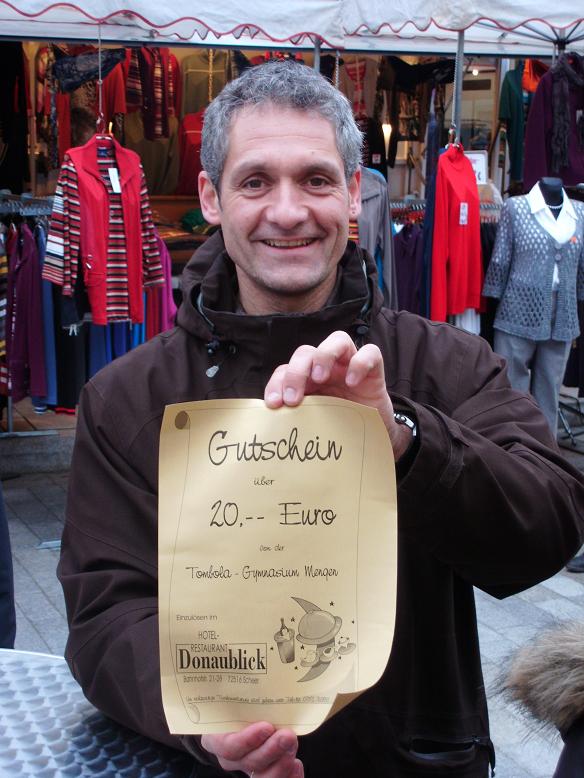 Gutschein
über
20,-- Euro
von der
Tombola - Gymnasium Mengen
Einzulösen im
HOTEL-
RESTAURANT
Donaublick
Bahnhofstr. 21-28 72516 Scheer